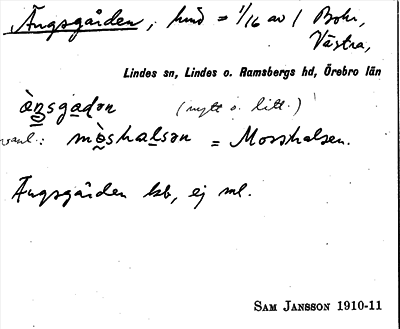 Ängsgården, hmd = 1/16 av 1 Bohr,
Västra,
Lindes sn, Lindes o. Ramsbergs hd, Örebro län
ä̀ŋsgaḍən (nytt o. litt.)
vanl.: mòshalsən = Mosshalsen.
Ängsgården lsb, ej ml.
SAM JANSSON 1910-11